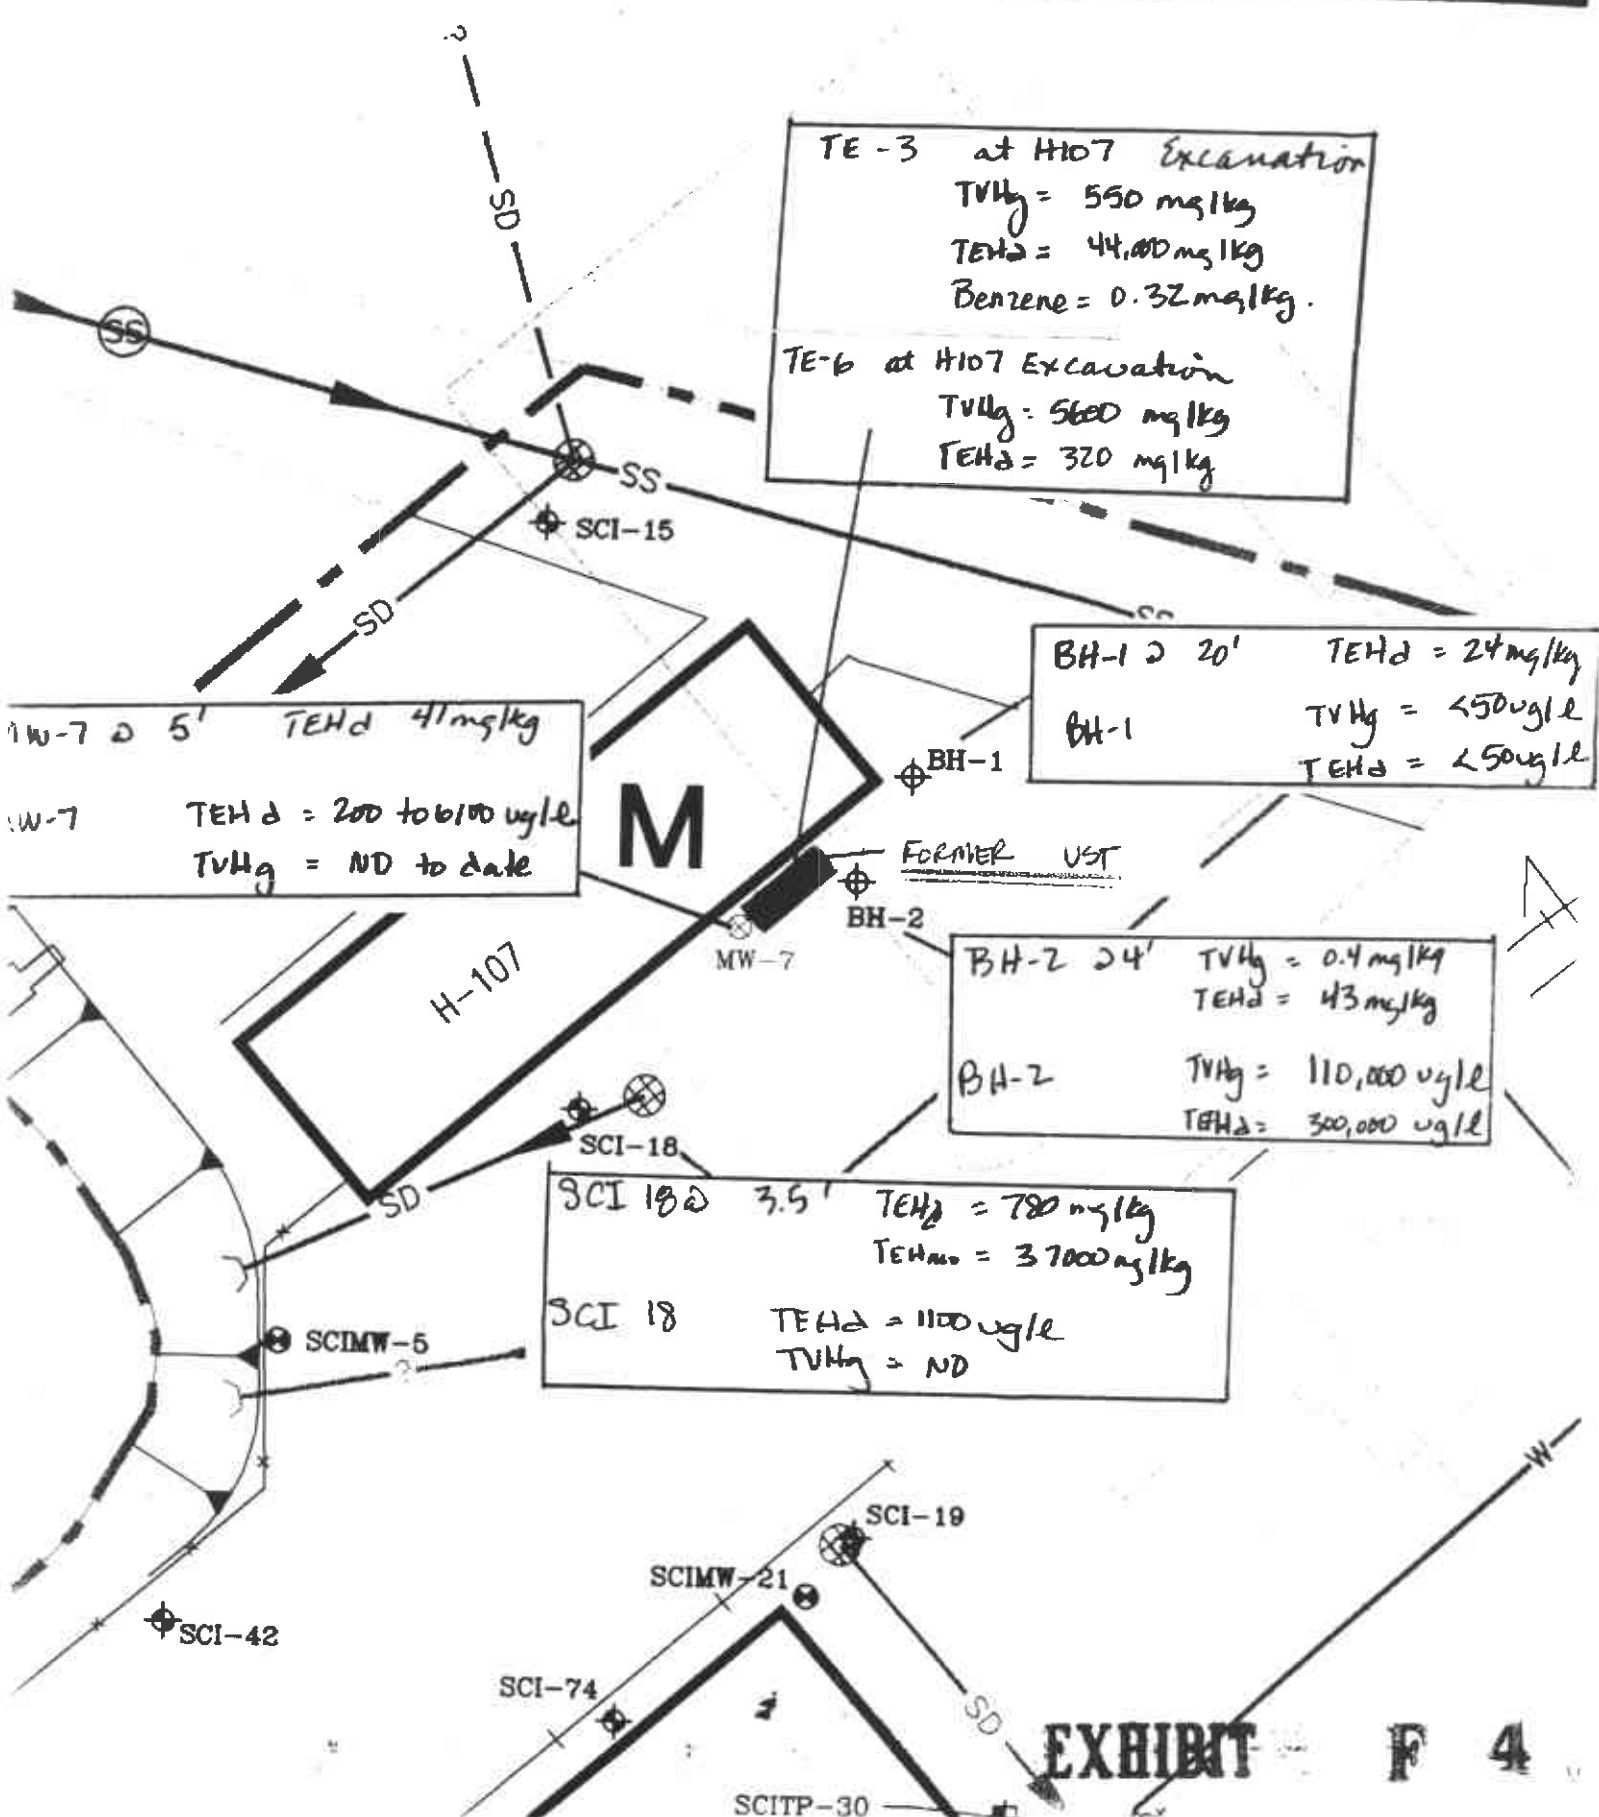 ?
SD
TE-3 at H107 Excavation
TVHg = 550 mg/kg
TEHd = 44,000 mg/kg
Benzene = 0.32 mg/kg.
TE-6 at H107 Excavation
TVHg = 5600 mg/kg
TEHd = 320 mg/kg
SS
SS
SCI-15
SD
BH-1 @ 20' TEHd = 24 mg/kg
BH-1 TVHg = <50 ug/l
TEHd = <50 ug/l
MW-7 @ 5' TEHd 41 mg/kg
MW-7 TEHd = 200 to 6100 ug/l
TVHg = ND to date
M
BH-1
FORMER UST
BH-2
MW-7
H-107
BH-2 @ 4' TVHg = 0.4 mg/kg
TEHd = 43 mg/kg
BH-2 TVHg = 110,000 ug/l
TEHd = 300,000 ug/l
SCI-18
SD
SCI 18 @ 3.5' TEHd = 780 mg/kg
TEHmo = 37000 mg/kg
SCI 18 TEHd = 1100 ug/l
TVHg = ND
SCIMW-5
?
W
SCI-19
SCIMW-21
SCI-42
SCI-74
SD
EXHIBIT F 4
SCITP-30